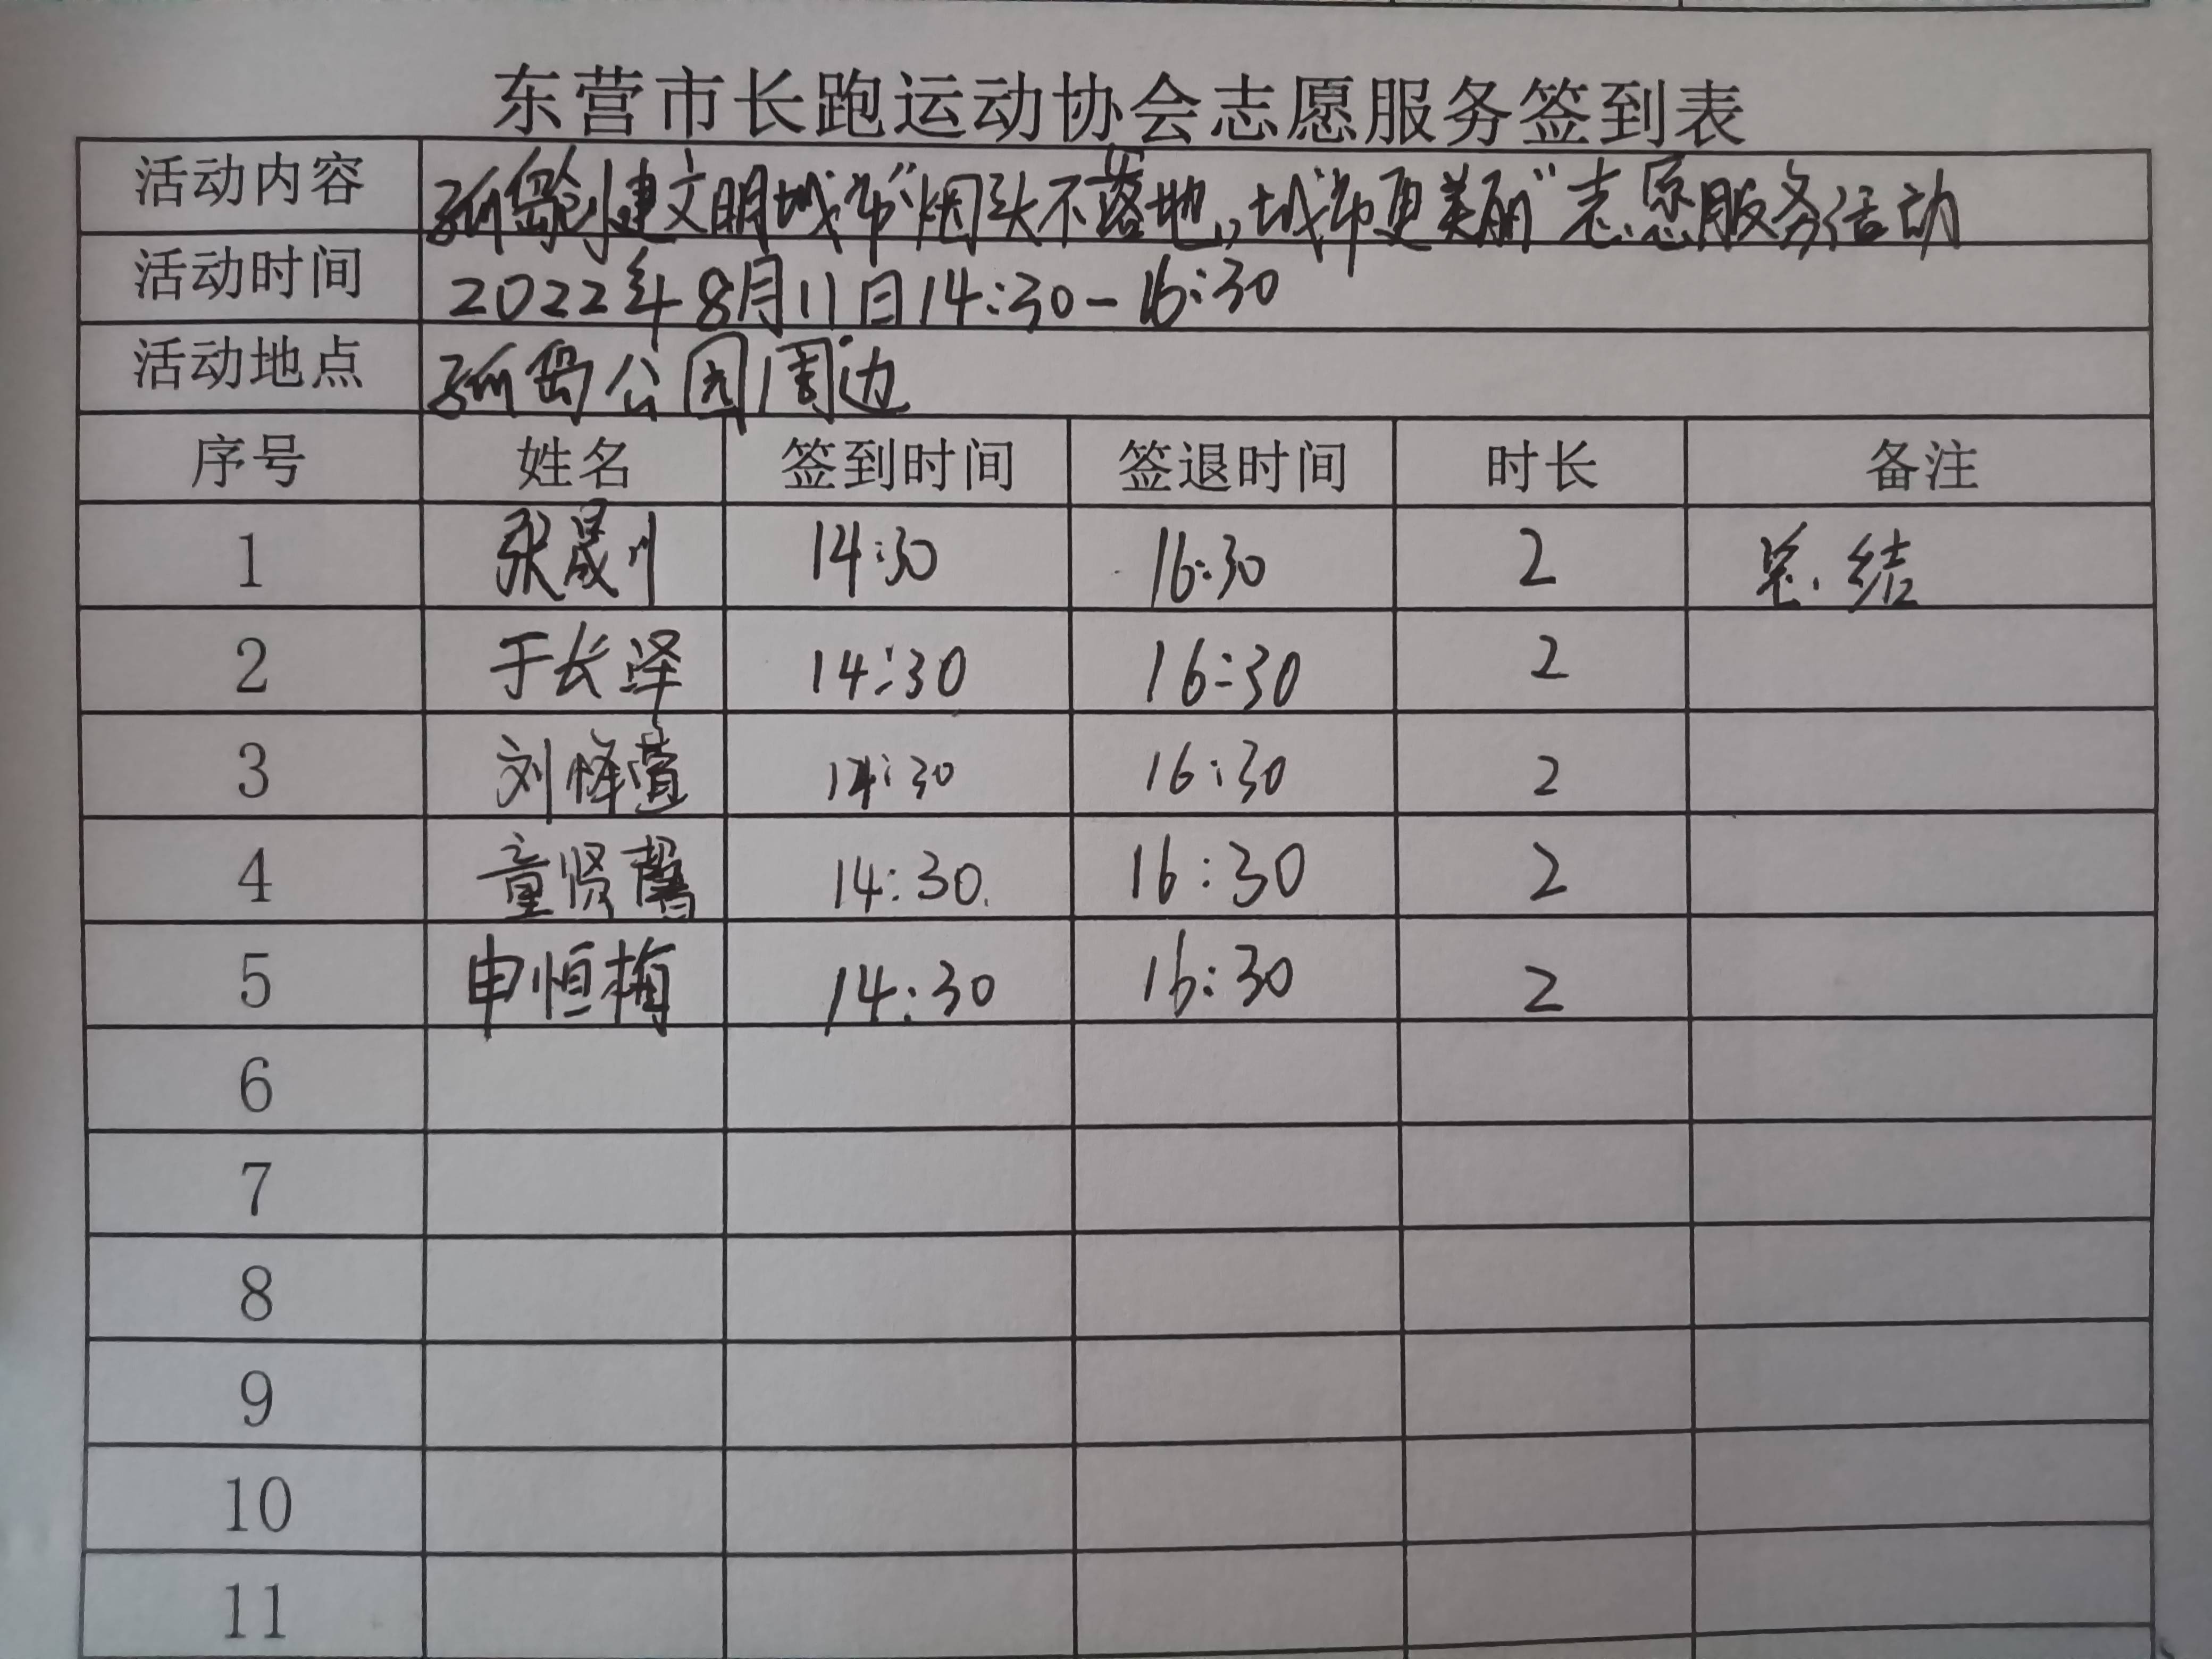 东营市长跑运动协会志愿服务签到表
活动内容 孤岛创建文明城市“烟头不落地，城市更美丽”志愿服务活动
活动时间 2022年8月11日14:30-16:30
活动地点 孤岛公园周边
序号 姓名 签到时间 签退时间 时长 备注
1 张晟川 14:30 16:30 2 总结
2 于长泽 14:30 16:30 2
3 刘怿萱 14:30 16:30 2
4 童贤馨 14:30. 16:30 2
5 申恒梅 14:30 16:30 2
6
7
8
9
10
11